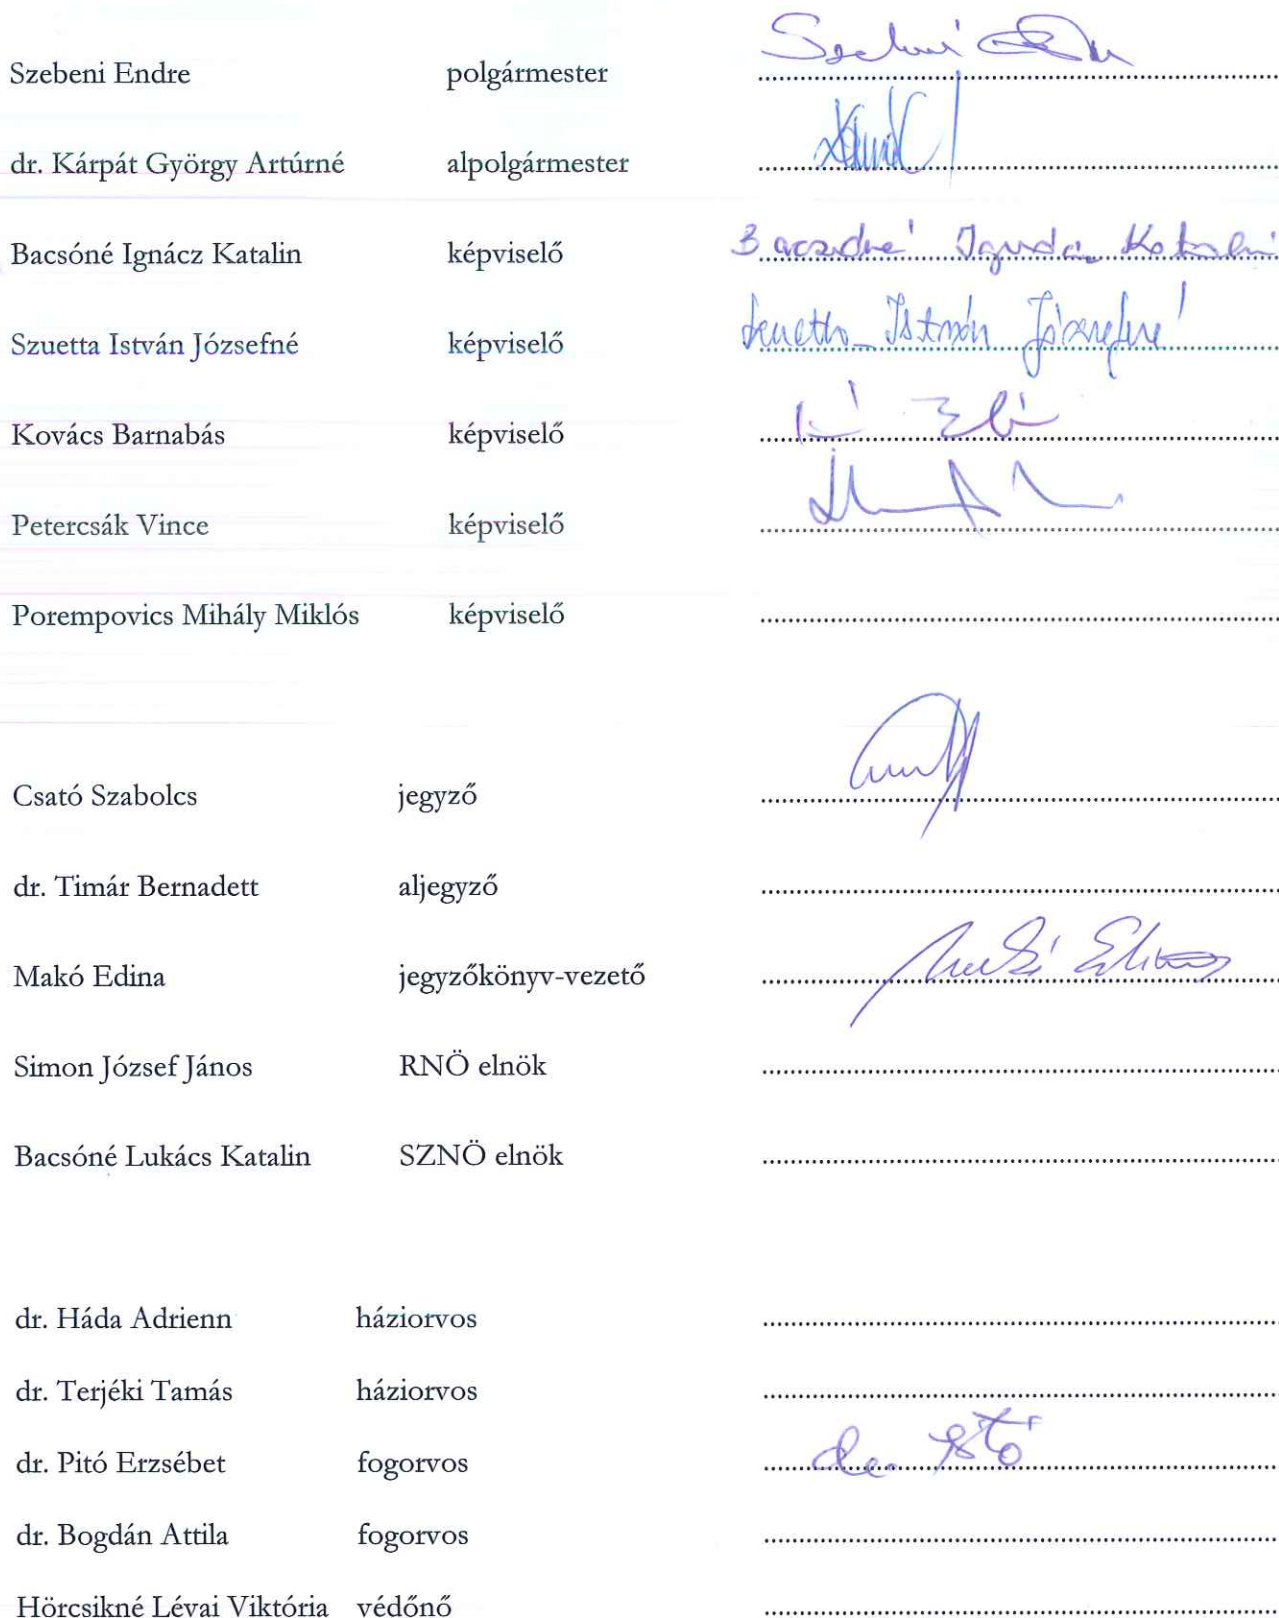 Szebeni Endre polgármester
dr. Kárpát György Artúrné alpolgármester
Bacsóné Ignácz Katalin képviselő Bacsóné Ignácz Katalin
Szuetta István Józsefné képviselő Szuetta István Józsefné
Kovács Barnabás képviselő
Petercsák Vince képviselő
Porempovics Mihály Miklós képviselő
Csató Szabolcs jegyző
dr. Timár Bernadett aljegyző
Makó Edina jegyzőkönyv-vezető Makó Edina
Simon József János RNÖ elnök
Bacsóné Lukács Katalin SZNÖ elnök
dr. Háda Adrienn háziorvos
dr. Terjéki Tamás háziorvos
dr. Pitó Erzsébet fogorvos
dr. Bogdán Attila fogorvos
Hörcsikné Lévai Viktória védőnő